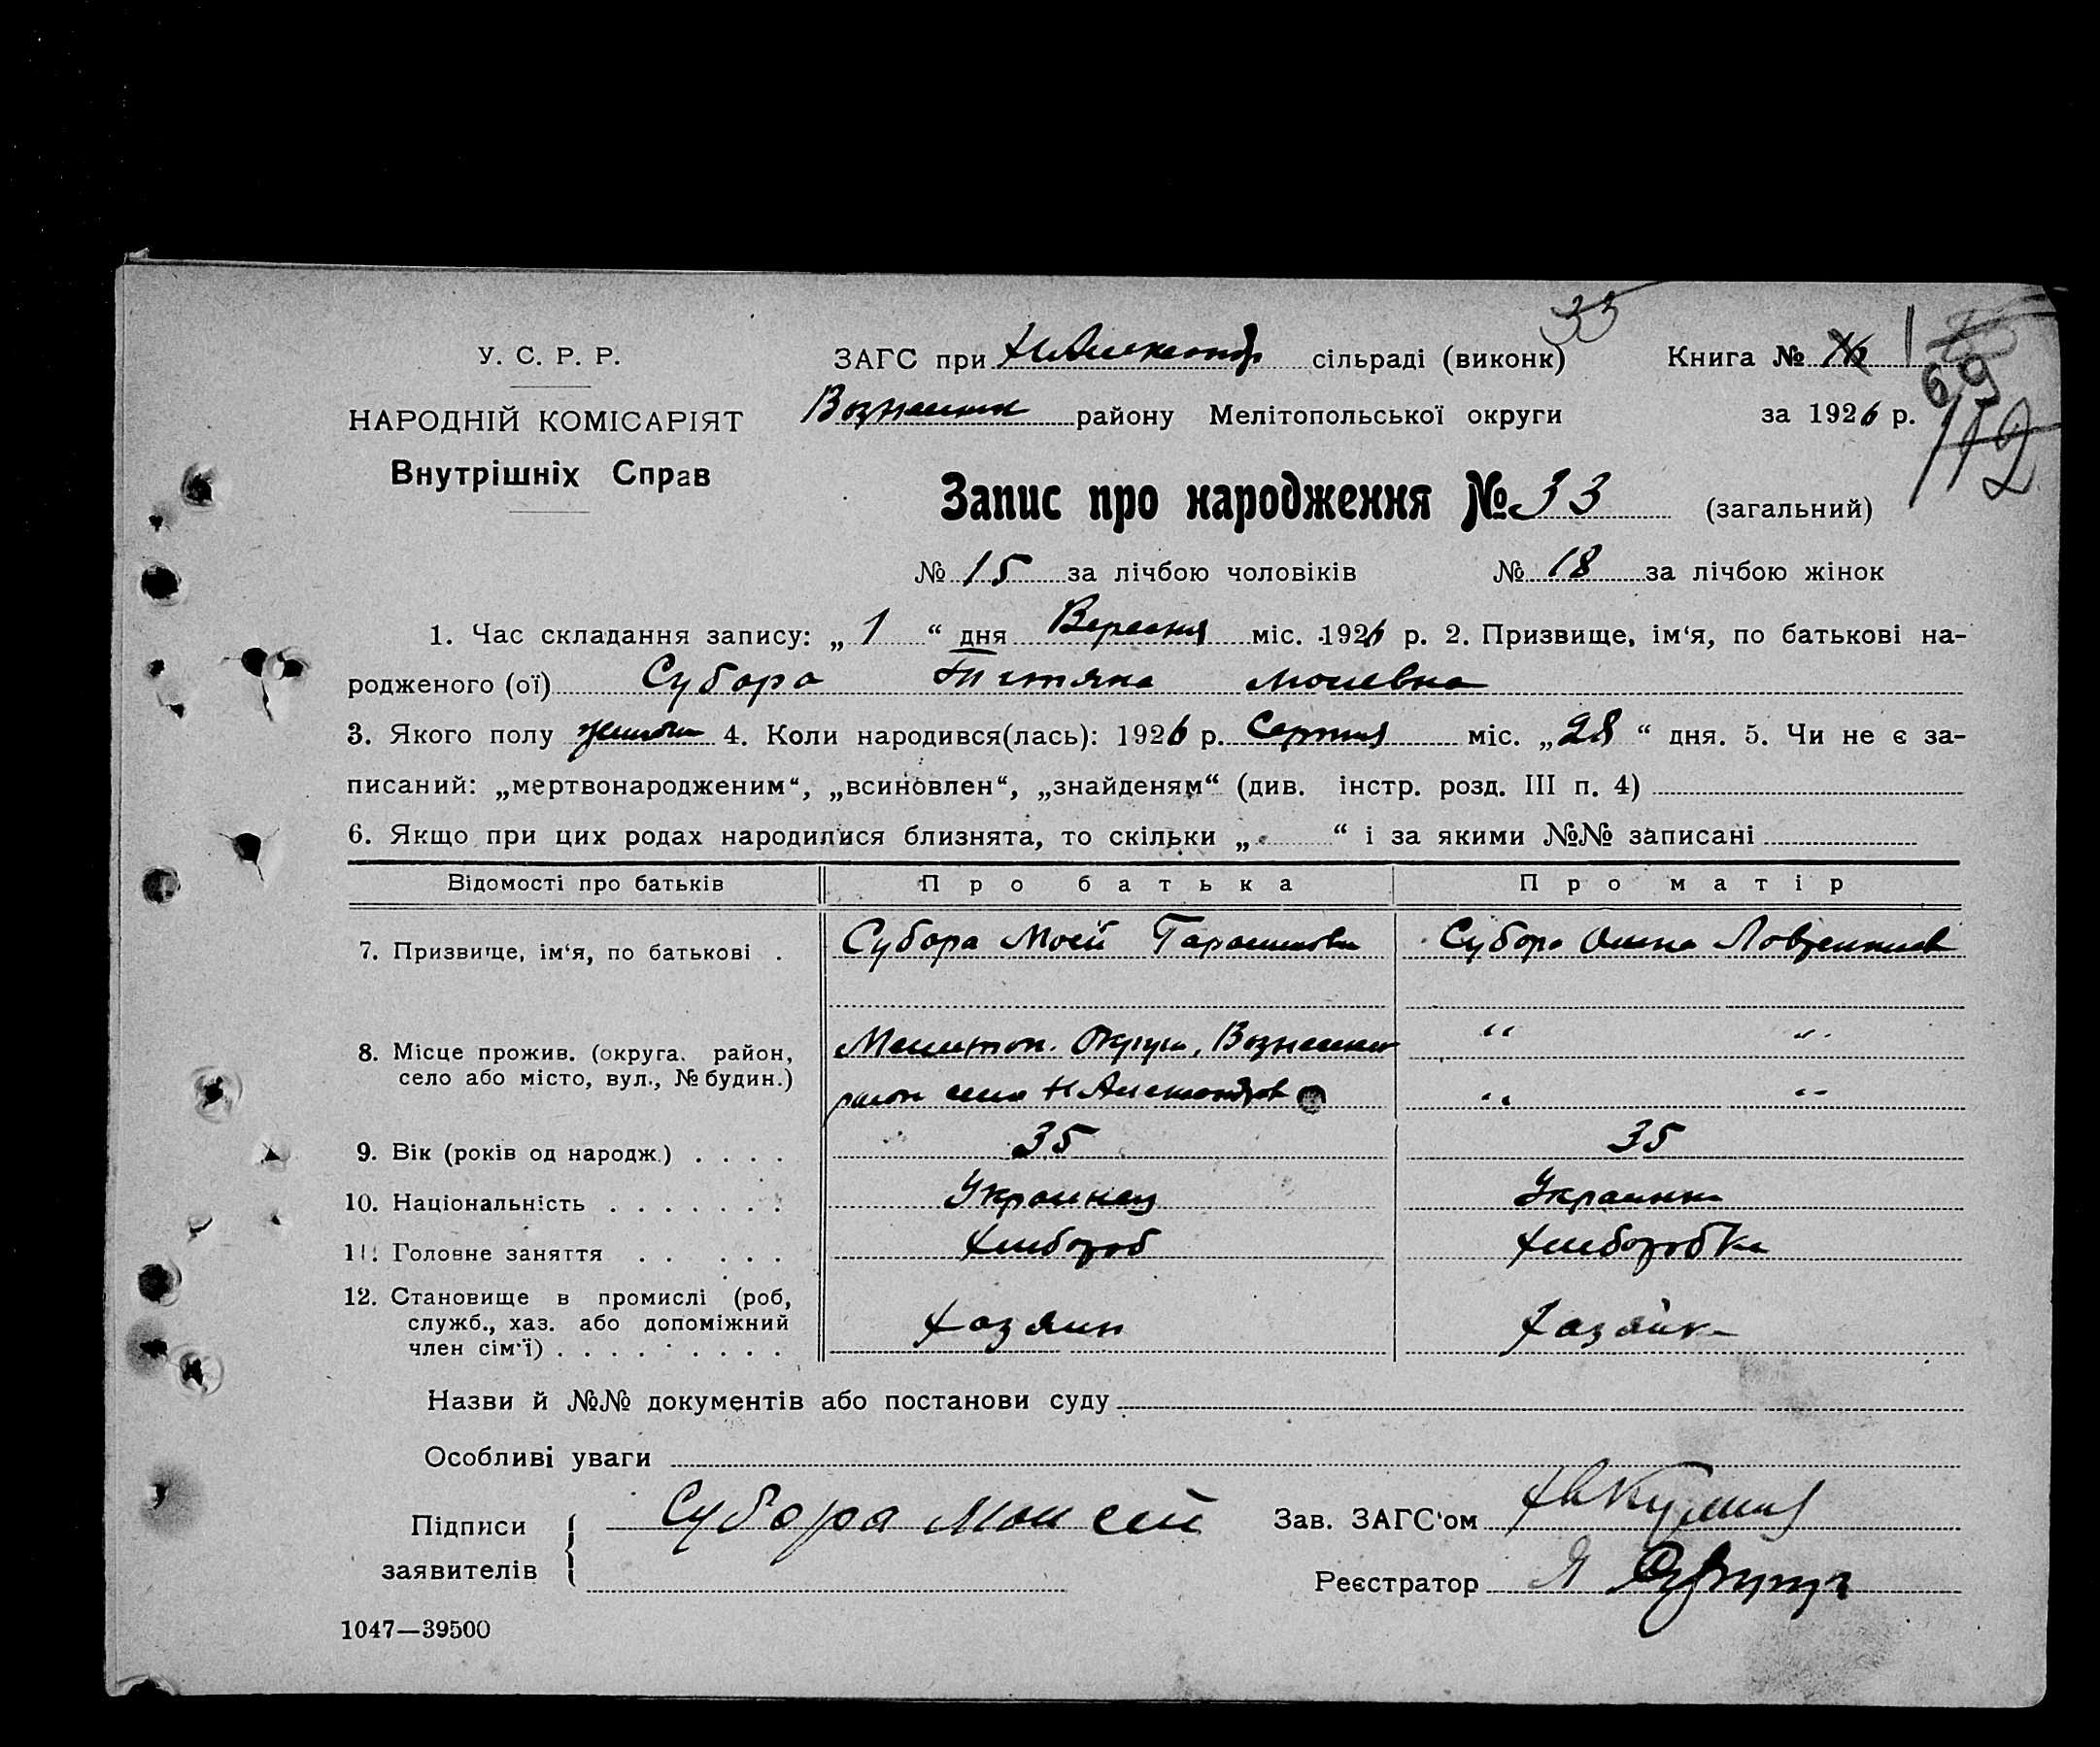 33
У. С. Р. Р. ЗАГС при Н Александр сільраді (виконк) Книга № 1
69
НАРОДНІЙ КОМІСАРІЯТ Вознесенк району Мелітопольської округи за 1926 р.
112
Внутрішніх Справ
Запис про народження № 33 (загальний)
№ 15 за лічбою чоловіків № 18 за лічбою жінок
1. Час складання запису: „ 1 “ дня Вересня міс. 1926 р. 2. Призвище, ім‘я, по батькові на-
родженого (ої) Субора Тетяна Моиевна
3. Якого полу 4. Коли народився(лась): 1926 р. Серпня міс. „28“ дня. 5. Чи не є за-
писаний: „мертвонародженим“, „всиновлен“, „знайденям“ (див. інстр. розд. III п. 4)
6. Якщо при цих родах народилися близнята, то скільки „ “ і за якими №№ записані
Відомості про батьків Про батька Про матір
7. Призвище, ім‘я, по батькові . Субора Моей Субора
8. Місце прожив. (округа. район, Мелитоп. Округи, Вознесенк “ “
село або місто, вул., № будин.) район село Н Александров “ “
9. Вік (років од народж.) . . . . 35 35
10. Національність . . . . . . . Украинец Украинка
11. Головне заняття . . . . . Хлибороб Хлиборобка
12. Становище в промислі (роб,
служб., хаз. або допоміжний Хозяин Хазяйка
член сім‘ї) . . . . . . . . .
Назви й №№ документів або постанови суду
Особливі уваги
Підписи Субора Моисей Зав. ЗАГС‘ом
заявителів
Реєстратор
1047—39500